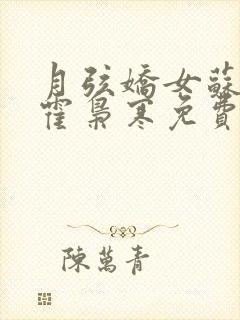 月弦嬌女蘇
霍梟寒免費
陳萬青